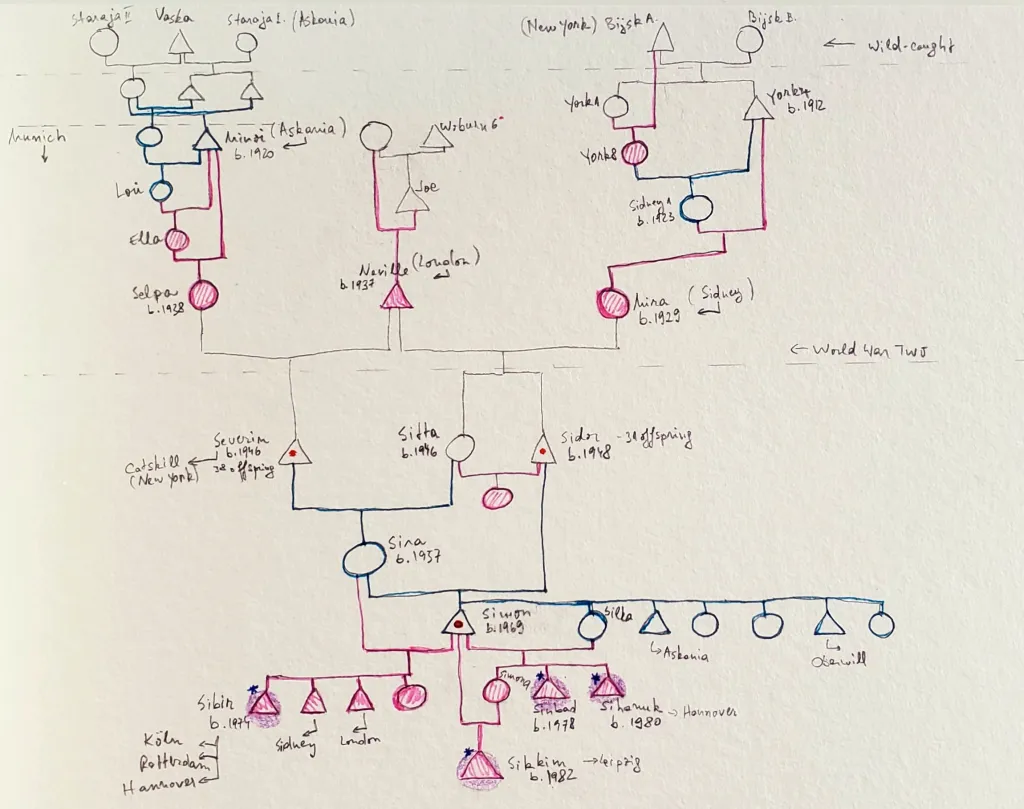 Staraja II
Vaska
Staraja I. (Askania)
(New York) Bijsk A.
Bijsk B.
← Wild-caught
York 1
York 4
b. 1912
Munich
Minoi (Askania)
b. 1920
Woburn 6
York 8
Lori
Joe
Sidney 1
b. 1923
Ella
Neville (London)
b. 1937
Selpa
b. 1938
Mira (Sidney)
b. 1929
← World War Two
Severin
b. 1946
38 offspring
Catskill
(New York)
Sitta
b. 1946
Sidor - 31 offspring
b. 1948
Sina
b. 1957
Simon
b. 1969
Silka
Askania
Oberwill
Sibir
b. 1974
Sidney
London
Simona
Sinbad
b. 1978
Sihanuk → Hannover
b. 1980
Köln
Rotterdam
Hannover
Sikkim → Leipzig
b. 1982